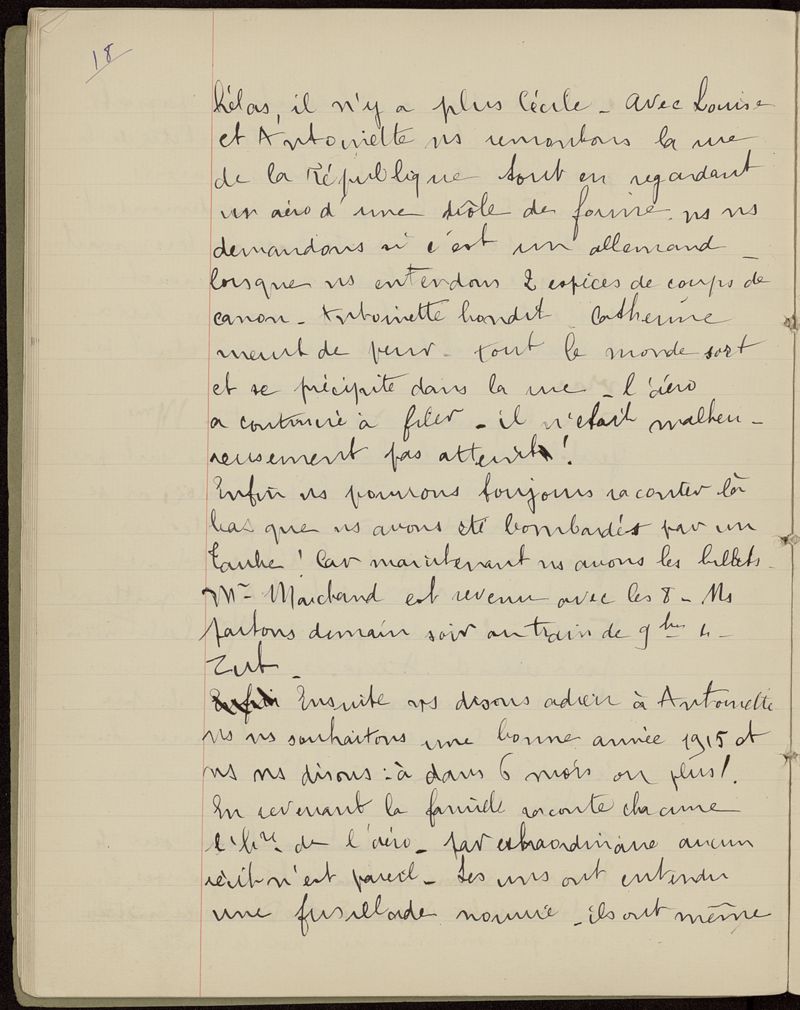 18
hélas, il n'y a plus Cécile - Avec Louise
et Antoinette ns remontons la rue
de la République tout en regardant
un aéro d'une drôle de forme. ns ns
demandons si c'est un allemand -
lorsque ns entendons 2 espèces de coups de
canon - Antoinette bondit Catherine
meurt de peur - tout le monde sort
et se précipite dans la rue - l'aéro
a continué à filer - il n'était malheu -
reusement pas atteint !
Enfin ns pourrons toujours raconter là
bas que ns avons été bombardés par un
Taube ! Car maintenant ns avons les billets -
Mr Marchand est revenu avec les 8 - Ns
partons demain soir au train de 9 hes 4 -
Zut -
Enfin Ensuite ns disons adieu à Antoinette
ns ns souhaitons une bonne année 1915 et
ns ns disons : à dans 6 mois ou plus !
En revenant la famille raconte chacune
l'hre de l'aéro - par extraordinaire aucun
récit n'est pareil - Les uns ont entendu
une fusillade nourrie - ils ont même